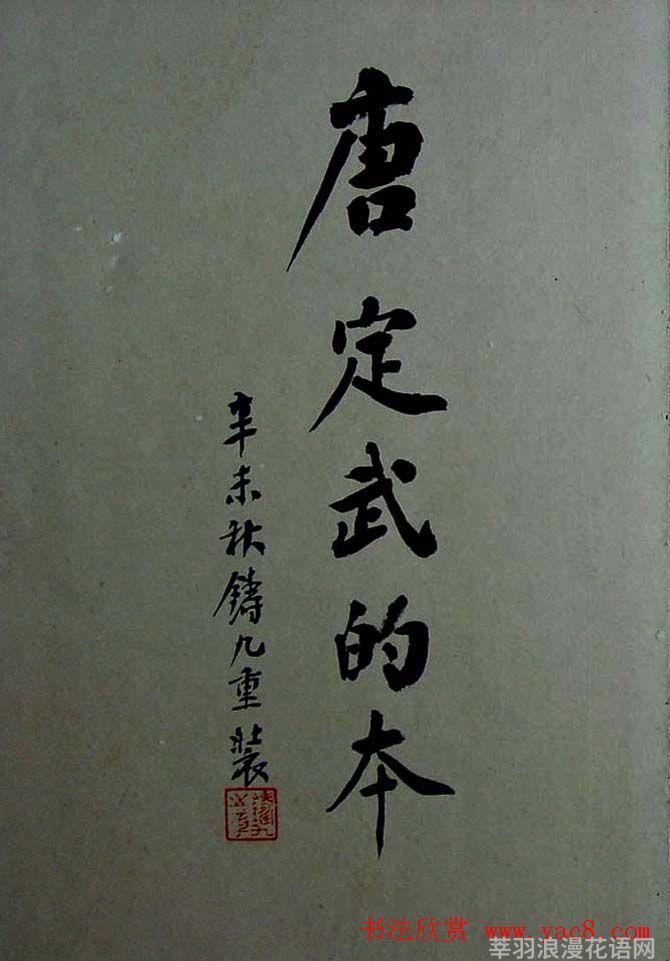 唐定武的本
辛未秋鑄九重裝
书法欣赏 www.yac8.com
莘羽浪漫花语网